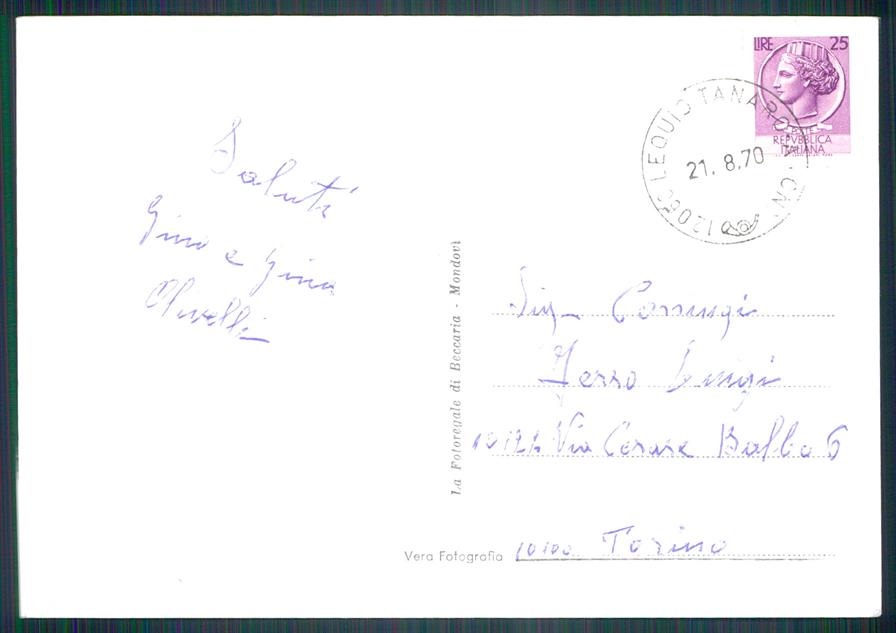 LIRE 25
POSTE
REPVBBLICA
ITALIANA
12060 LEQUIO TANARO (CN)
21.8.70
Saluti
Gino e Gina
Olivelli
La Fotoregale di Beccaria - Mondovì
Sig.
Luigi
Via Cesare Balbo 6
Vera Fotografia
10100 Torino